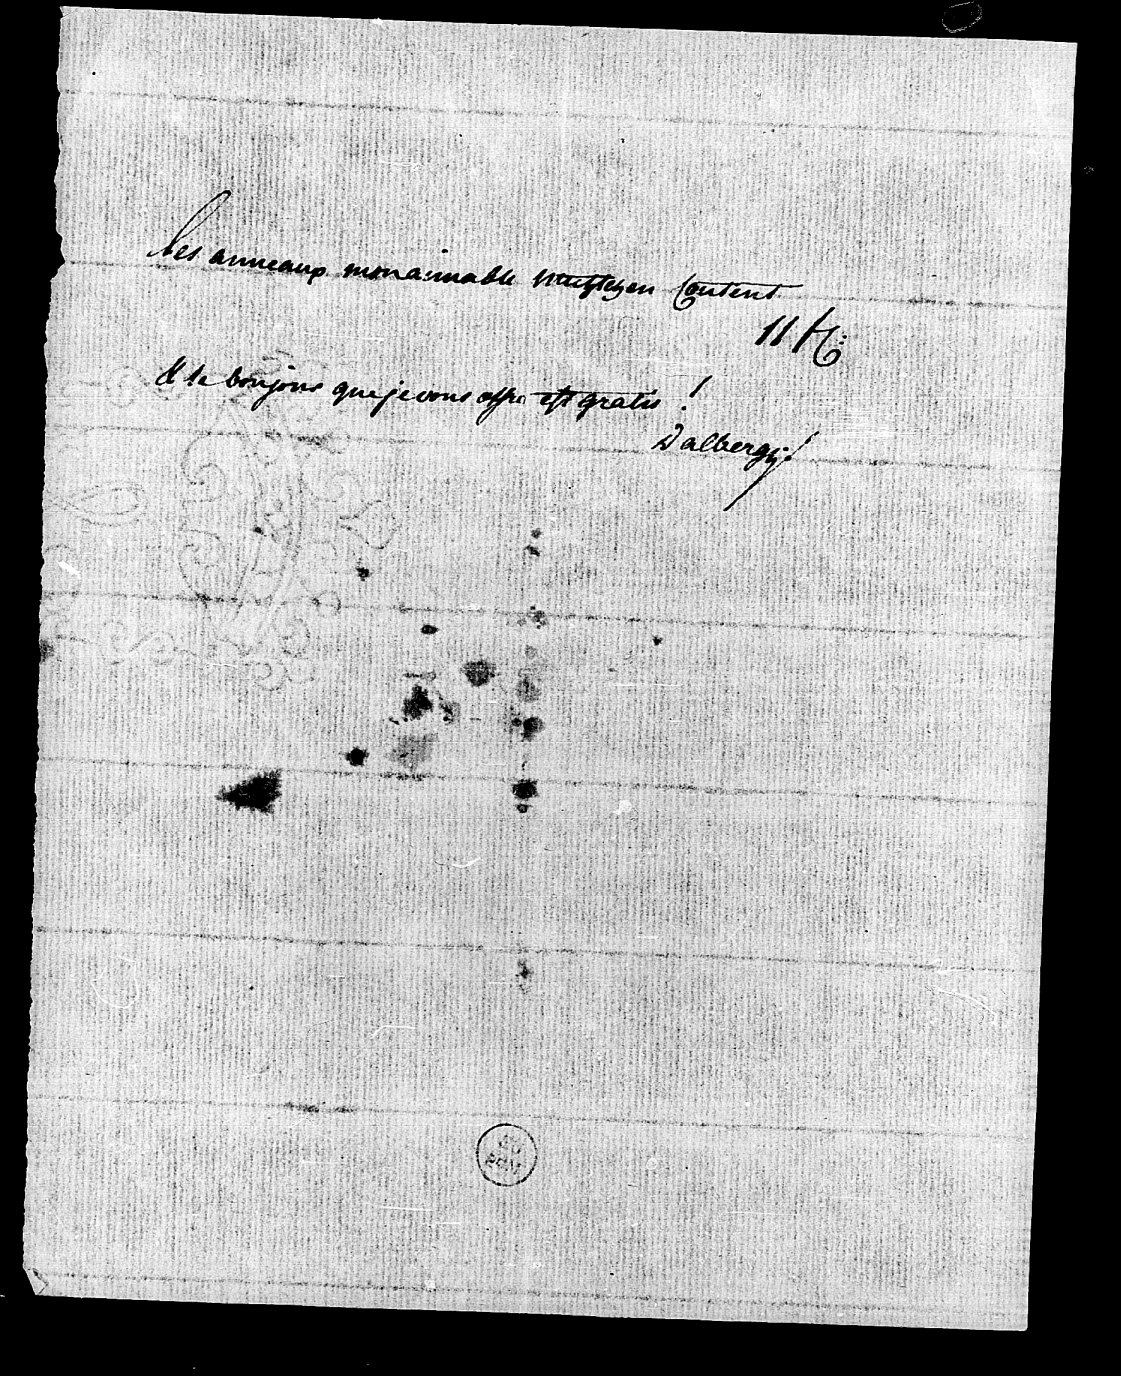 Les anneaux mon aimable coutent
11 
& le bonjour que je vous offre est gratis !
Dalberg